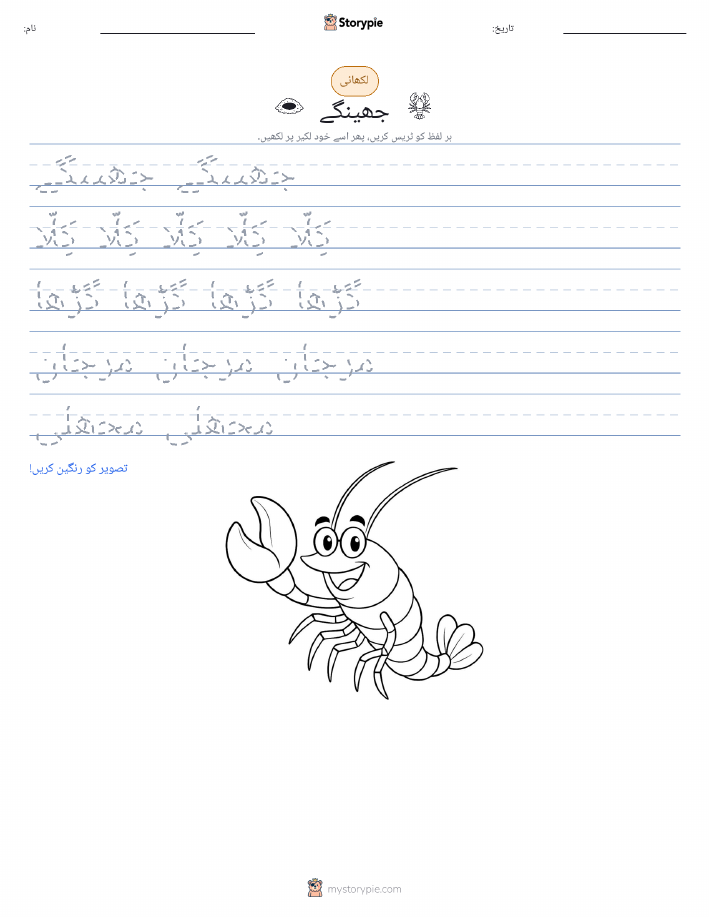 Storypie
نام:
تاریخ:
لکھائی
جھینگے
ہر لفظ کو ٹریس کریں، پھر اسے خود لکیر پر لکھیں۔
جھینگے جھینگے
مرجان مرجان مرجان
مچھلی مچھلی
تصویر کو رنگین کریں!
mystorypie.com